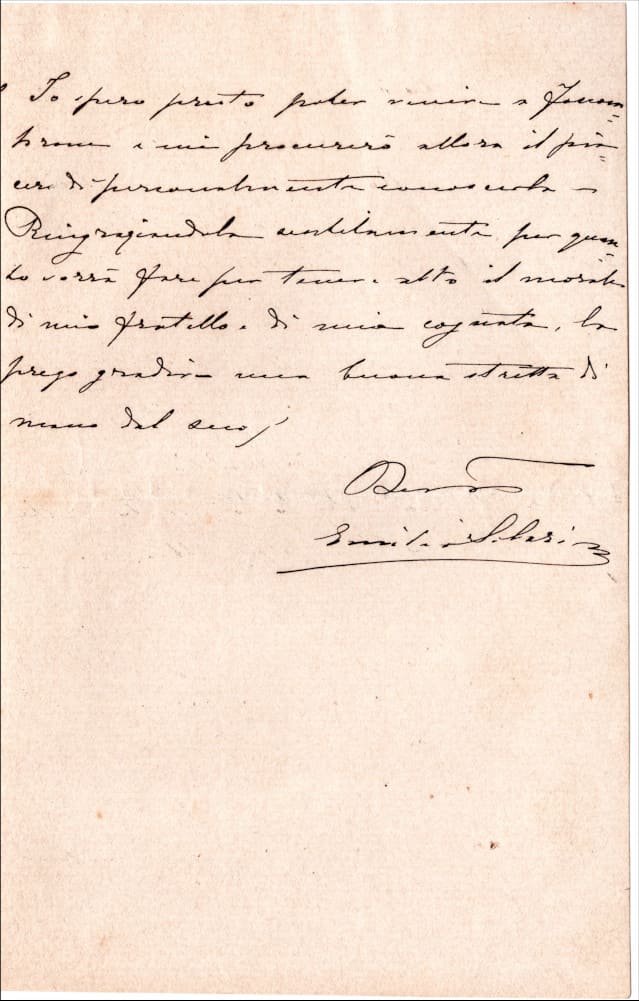 Io spero presto poter venire a Fossom=
brone e mi procurerò allora il pia=
cere di personalmente conoscerla –
Ringraziandola sentitamente per quan=
to vorrà fare per tener alto il morale
di mio fratello e di mia cognata, la
prego gradire una buona stretta di
mano dal suo
Dev.mo
Emilio